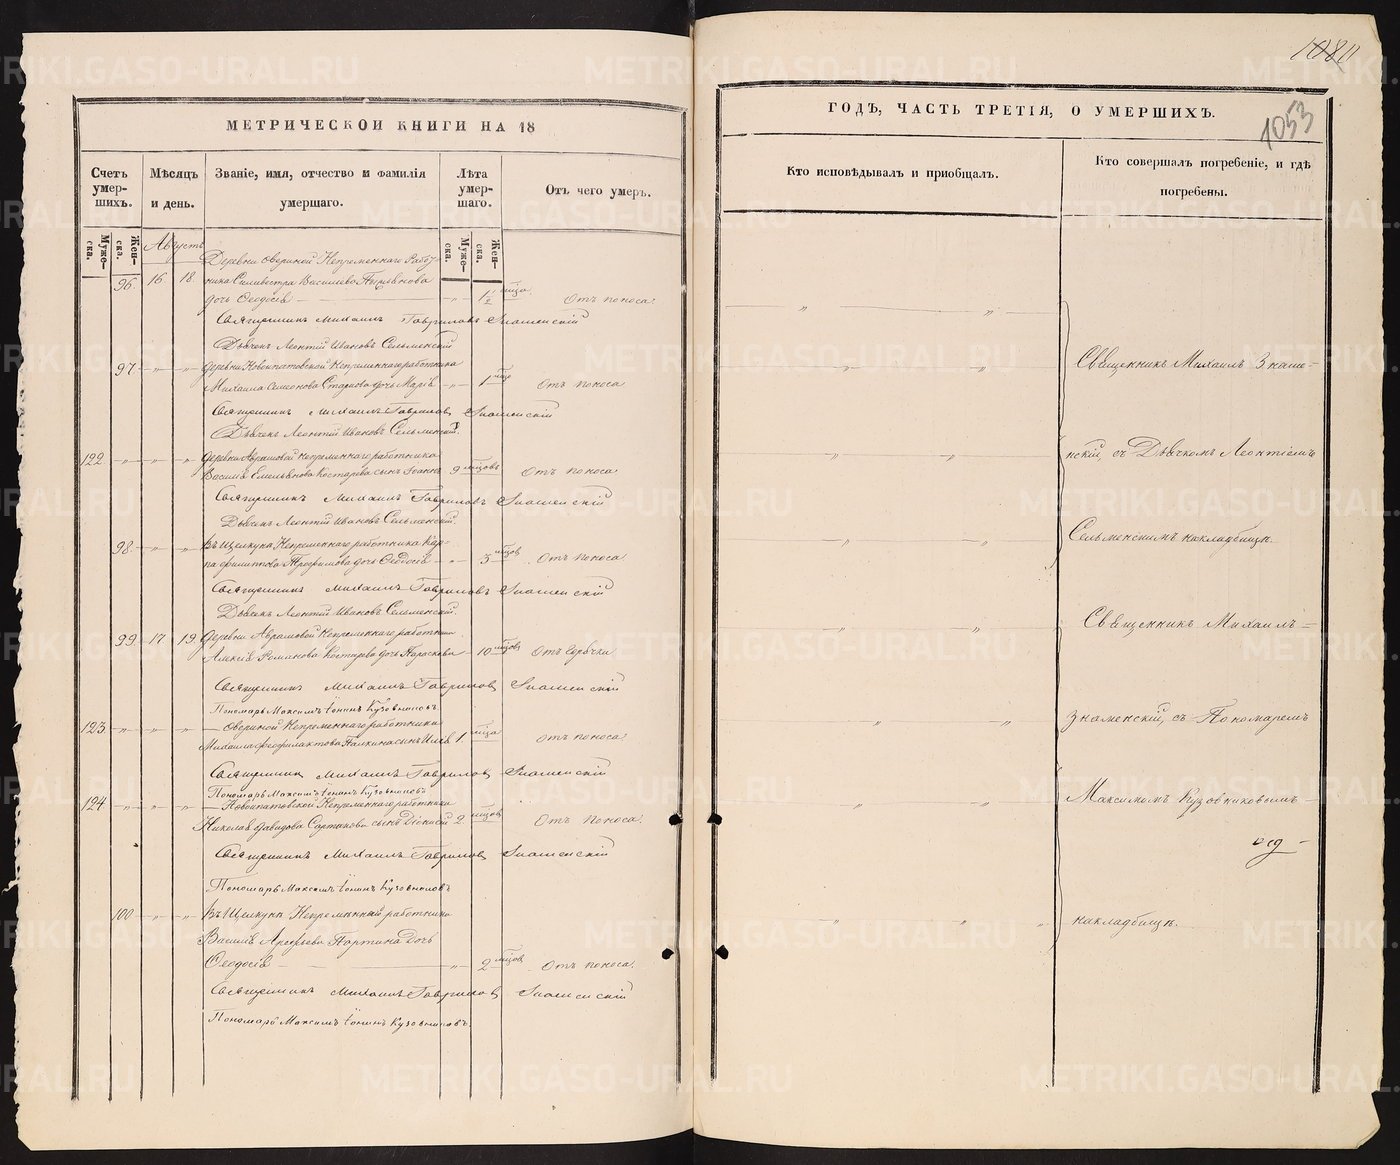 МЕТРИЧЕСКОЙ КНИГИ НА 18
Счетъ умер-шихъ.
Мѣсяцъ и день.
Званіе, имя, отчество и фамилія умершаго.
Лѣта умер-шаго.
Отъ чего умеръ.
Муже-ска.
Жен-ска.
Муже-ска.
Жен-ска.
Августъ
Деревни Овериной Непременнаго Рабо-
96 16 18 ника Силивестра Васильева
дочь Ѳеодосія — „ — 1½ мца Отъ поноса
Священникъ Михаилъ Гавриловъ Знаменскій
Дьячекъ Леонтій Ивановъ Сельменскій
97 „ „ деревни Новоипатовской Непременнаго работника
Михаила Семеонова Старкова дочь Марія „ 1 мца Отъ поноса
Священникъ Михаилъ Гавриловъ Знаменскій
Дьячекъ Леонтій Ивановъ Сельменскій.
122 „ „ деревни Аврамовой непременнаго работника
Василія Емельянова Костарева сынъ Іоаннъ 9 мцовъ Отъ поноса
Священникъ Михаилъ Гавриловъ Знаменскій
Дьячекъ Леонтій Ивановъ Сельменскій.
98 „ „ Въ Щелкуна Непременнаго работника Кар-
па Филипова Трофимова дочь Ѳеодосія „ 5 мцовъ Отъ поноса
Священникъ Михаилъ Гавриловъ Знаменскій
Дьячекъ Леонтій Ивановъ Сельменскій.
99 17 19 Деревни Аврамовой Непременнаго работника
Алексія Романова Костарева дочь Параскева 10 мцовъ Отъ
Священникъ Михаилъ Гавриловъ Знаменскій
Пономарь Максимъ Іонинъ Кузовниковъ.
123 „ „ — Овериной Непременнаго работника
Михаила Феофилактова Палкина сынъ Илія 1 мца Отъ поноса
Священникъ Михаилъ Гавриловъ Знаменскій
Пономарь Максимъ Іонинъ Кузовниковъ
124 „ „ — Новоипатовской Непременнаго работника
Николая Давидова сынъ Діонисій 2 мцов Отъ поноса.
Священникъ Михаилъ Гавриловъ Знаменскій
Пономарь Максимъ Іонинъ Кузовниковъ
100 „ „ Въ Щелкуна Непременный работника
Василія Арефьева Портина дочь
Ѳеодосія — „ 2 мцов Отъ поноса.
Священникъ Михаилъ Гавриловъ Знаменскій
Пономарь Максимъ Іонинъ Кузовниковъ.
ГОДЪ, ЧАСТЬ ТРЕТІЯ, О УМЕРШИХЪ.
1053
Кто исповѣдывалъ и пріобщалъ.
Кто совершалъ погребеніе, и гдѣ погребены.
Священникъ Михаилъ Знаме-
нскій, съ Дьячкомъ Леонтіемъ
Сельменскимъ накладбищѣ.
Священникъ Михаилъ
Знаменскій, съ Пономаремъ
Максимомъ Кузовниковымъ
накладбищѣ.
METRIKI.GASO-URAL.RU